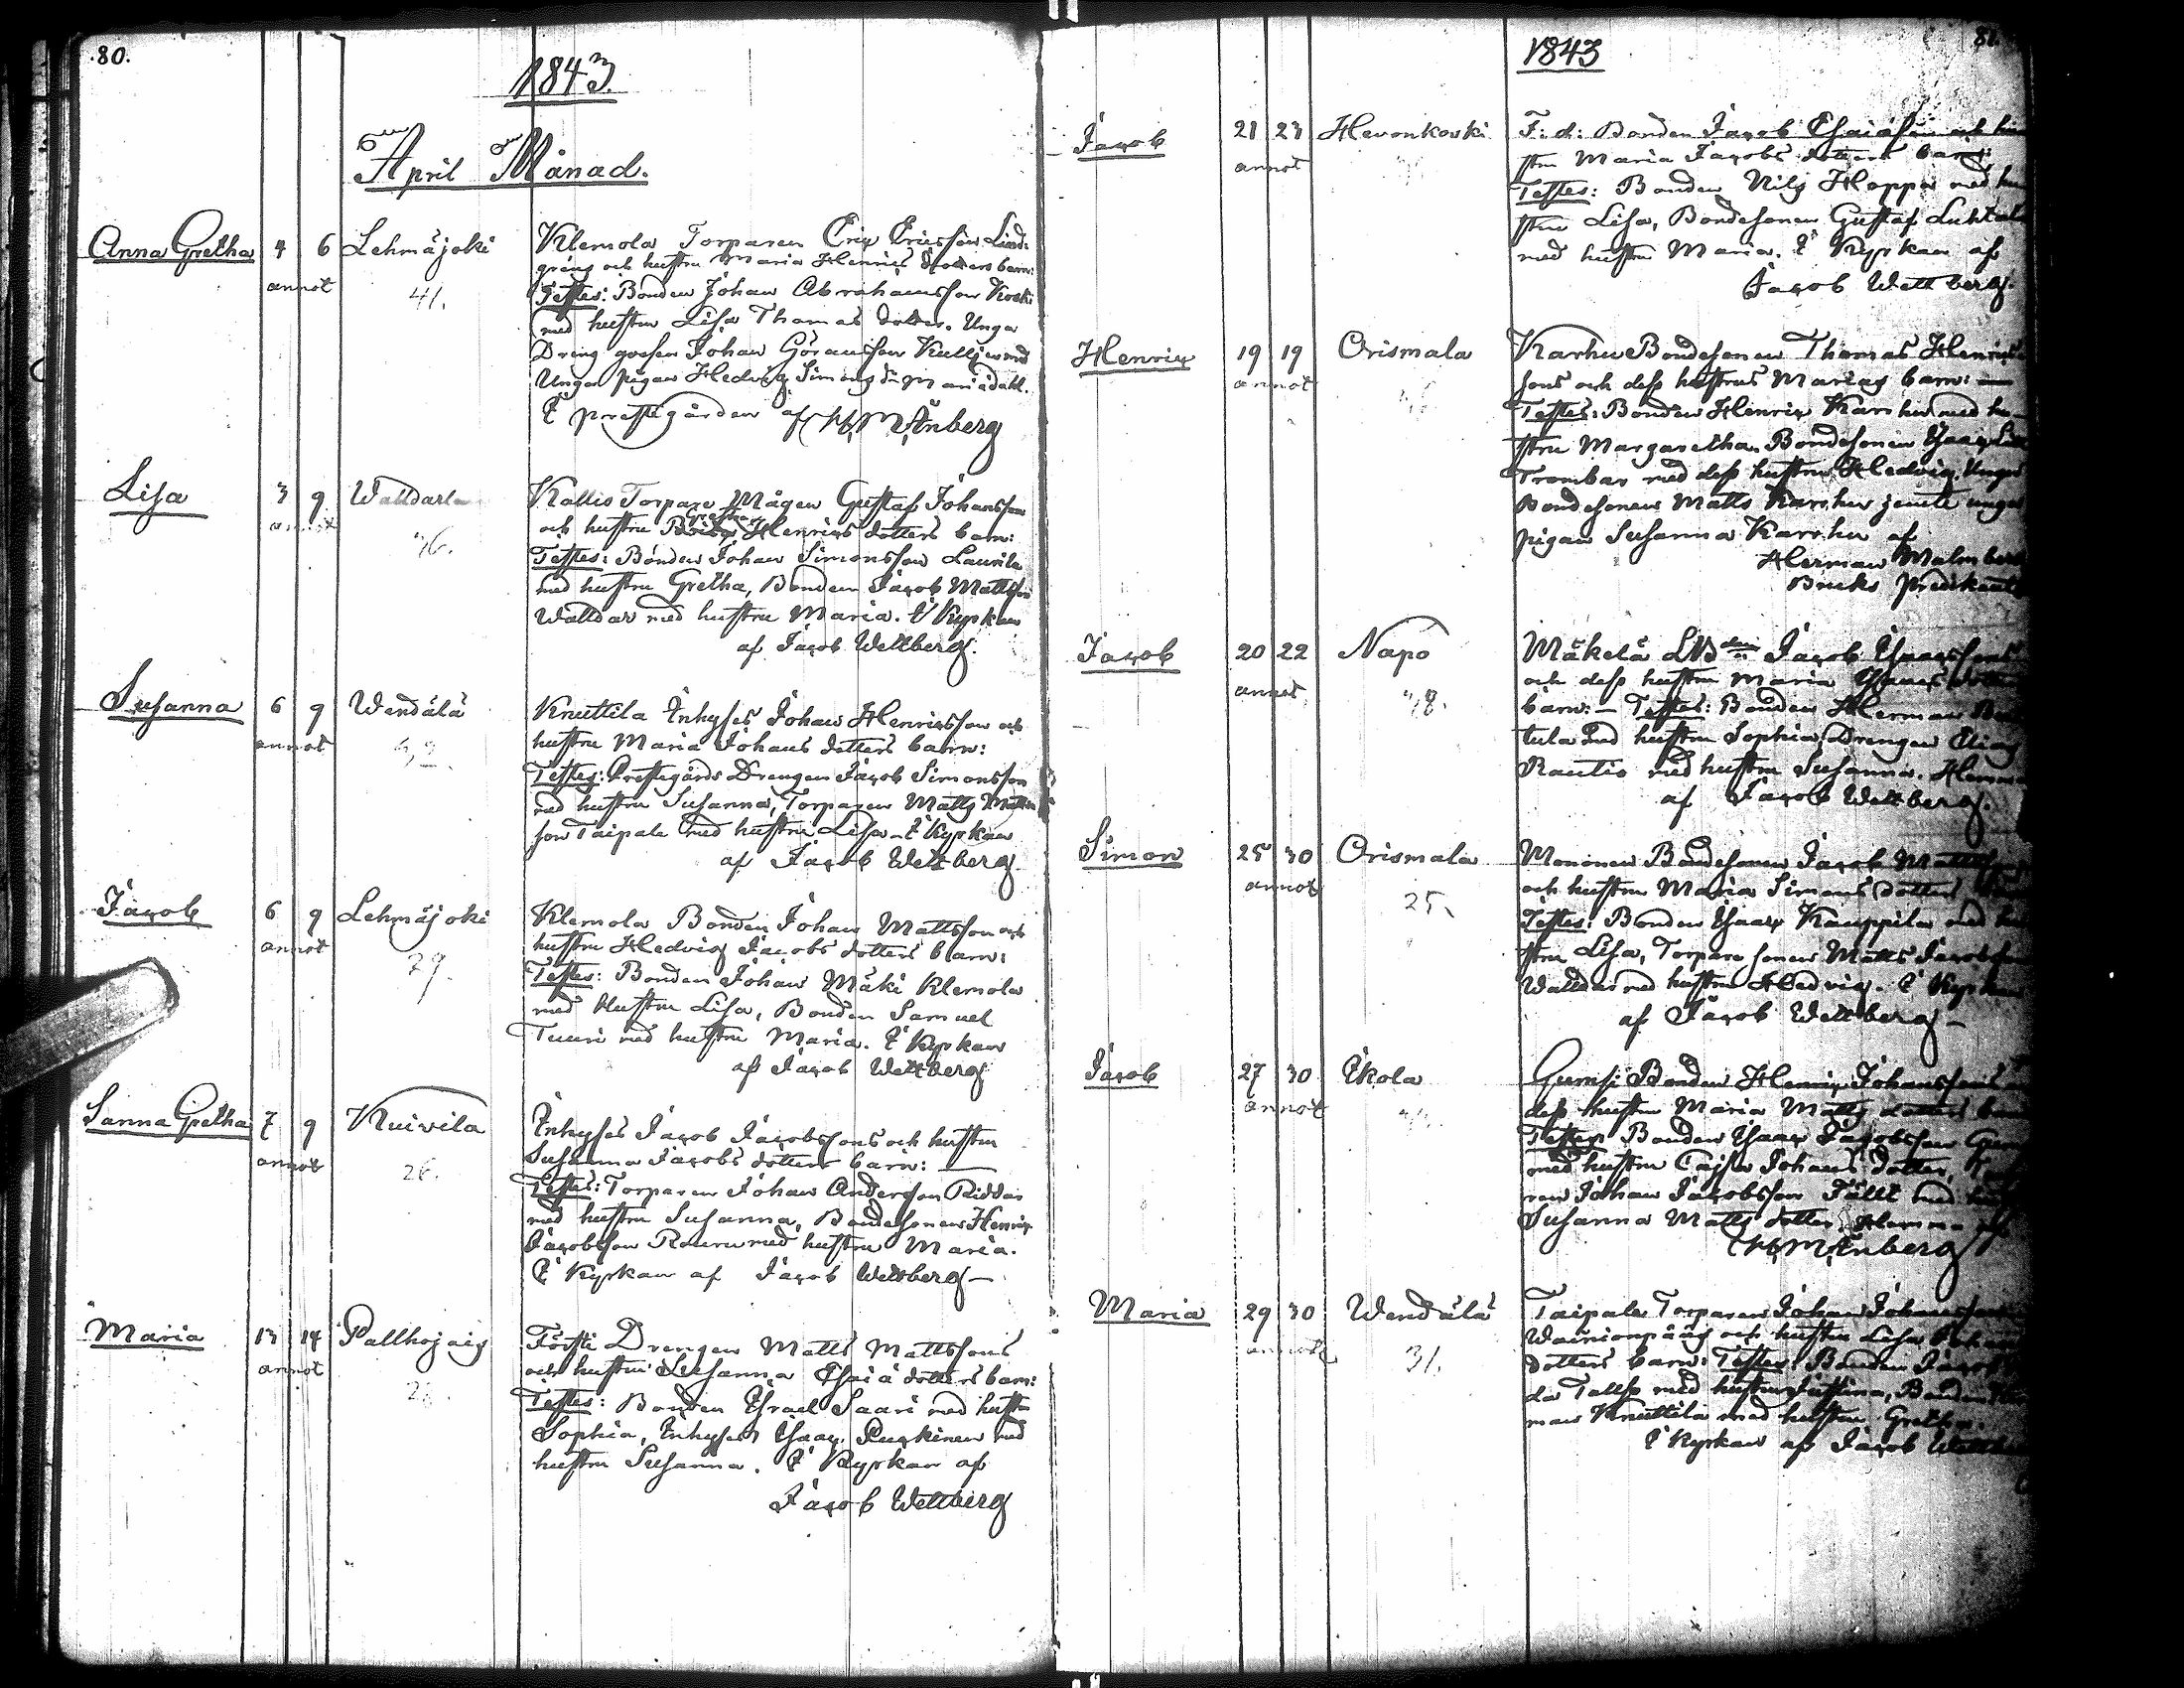 80.
1843.
April Månad.
Anna Gretha 4 6 Lehmäjoki Klemola Torparen Eric Ericsson Lind:
annot 41. grens och hustru Maria Henrics dotters barn:
Testes: Bonden Johan Abrahamsson Koski
med hustru Lisa Thomas dotter. Unga
Dreng gossen Johan Göransson
Unga pigan Hedvig Simons
I prestegården af
Lisa 3 9 Walldarla Kallio Torpare Mågen Gustaf Johansson
Gretha
annot 36. och hustru Henrics dotters barn:
Testes: Bonden Johan Simonsson Laurila
med hustru Gretha, Bonden Jacob Mattsson
Walldar med hustru Maria. I Kyrkan
af Jacob Wettberg.
Susanna 6 9 Wendälä Knuttila Inhyses Johan Henricsson och
annot 42. hustru Maria Johans dotters barn:
Testes: Prestegårds Drengen Jacob Simonsson
med hustru Susanna, Torparen Matts Matts
son Taipale med hustru Lisa. I Kyrkan
af Jacob Wettberg.
Jacob 6 9 Lehmäjoki Klemola Bonden Johan Mattsson och
annot 29. hustru Hedvig Jacobs dotters barn:
Testes: Bonden Johan Mäki Klemola
med Hustru Lisa, Bonden Samuel
Tuuri med hustru Maria. I Kyrkan
af Jacob Wettberg
Sanna Gretha 7 9 Kuivila Inhyses Jacob Jacobssons och hustru
annot 26. Susanna Jacobs dotters barn:
Testes: Torparen Johan Andersson Riddar
med hustru Susanna, Bondesonen Henric
Jacobsson Rauru med hustru Maria.
I Kyrkan af Jacob Wettberg
Maria 13 14 Pallhojais Försti Drengen Matts Mattssons
annot och hustru Susanna Esaiä dotters barn:
Testes: Bonden Israel Saari med hustru
Sophia, Inhyses Isaac Purkinen med
hustru Susanna. I Kyrkan af
Jacob Wettberg
81.
1843
Jacob 21 23 Hevonkoski F: d: Bonden Jacob Esaiäson och hu
annot stru Maria Jacobs dotters barn:
Testes: Bonden Nils Hoppa med hu
stru Lisa, Bondesonen Gustaf Luhtala
med hustru Maria. I Kyrkan af
Jacob Wettberg.
Henric 19 19 Orismala Karhu Bondesonen Thomas Henrics
annot sons och dess hustrus Marias barn:
Testes: Bonden Henric Karrhu med hu
stru Margaretha. Bondesonen Isaac
Trombar med dess hustru Hedvig. Unga
Bondesonen Matts Karrhu jemte unga
pigan Susanna Karrhu af
Herman Malmberg
Bruks predikant
Jacob 20 22 Napo Mäkelä LBden Jacob Isaacsons
annot 48. och dess hustru Maria Isaacs dotters
barn: Testes: Bonden Herman
tula med hustru Sophia, Drengen Elias
Rautio med hustru Susanna. Hemma
af Jacob Wettberg.
Simon 25 30 Orismala Mononen Bondesonen Jacob Mattsson
annot 25. och hustru Maria Simons dotters
Testes: Bonden Isaac Kauppila med hu
stru Lisa, Torpare sonen Matts Jacobsson
Walldar med hustru Hedvig. I Kyrkan
af Jacob Wettberg
Jacob 27 30 Ikola Gumsi Bonden Henric Johanssons
annot dess hustru Maria Matts dotters barn
Testes Bonden Isaac Jacobsson
med hustru Cajsa Johans dotter,
ren Johan Jacobsson Fällt med
Susanna Matts dotter. Hemma af
Maria 29 30 Wendälä Taipale Torparen Johan Johansson
annot 31. och hustru Lisa
dotters barn: Testes: Bonden Jacob
med hustru Justina, Bonden
man Knuttila med hustru Gretha.
I Kyrkan af Jacob Wettberg